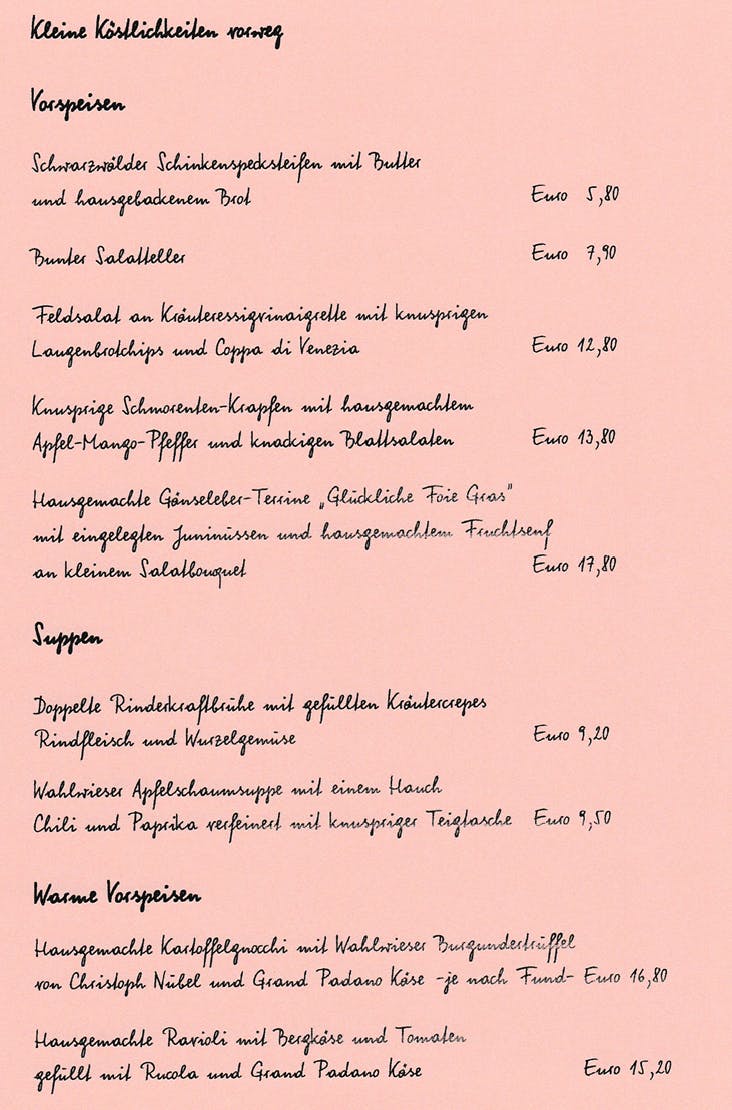 Kleine Köstlichkeiten vorweg
Vorspeisen
Schwarzwälder Schinkenspecksteifen mit Butter
und hausgebackenem Brot Euro 5,80
Bunter Salatteller Euro 7,90
Feldsalat an Kräuteressigvinaigrette mit knusprigen
Laugenbrotchips und Coppa di Venezia Euro 12,80
Knusprige Schmorenten-Krapfen mit hausgemachtem
Apfel-Mango-Pfeffer und knackigen Blattsalaten Euro 13,80
Hausgemachte Gänseleber-Terrine „Glückliche Foie Gras"
mit eingelegten Juninüssen und hausgemachtem Fruchtsenf
an kleinem Salatbouquet Euro 17,80
Suppen
Doppelte Rinderkraftbrühe mit gefüllten Kräutercrepes
Rindfleisch und Wurzelgemüse Euro 9,20
Wahlwieser Apfelschaumsuppe mit einem Hauch
Chili und Paprika verfeinert mit knuspriger Teigtasche Euro 9,50
Warme Vorspeisen
Hausgemachte Kartoffelgnocchi mit Wahlwieser Burgundertrüffel
von Christoph Nübel und Grand Padano Käse -je nach Fund- Euro 16,80
Hausgemachte Ravioli mit Bergkäse und Tomaten
gefüllt mit Rucola und Grand Padano Käse Euro 15,20